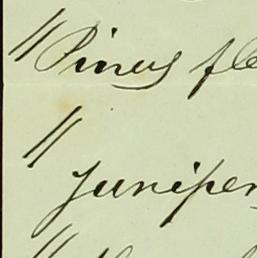 " Pinus fle
"
Juniper
"